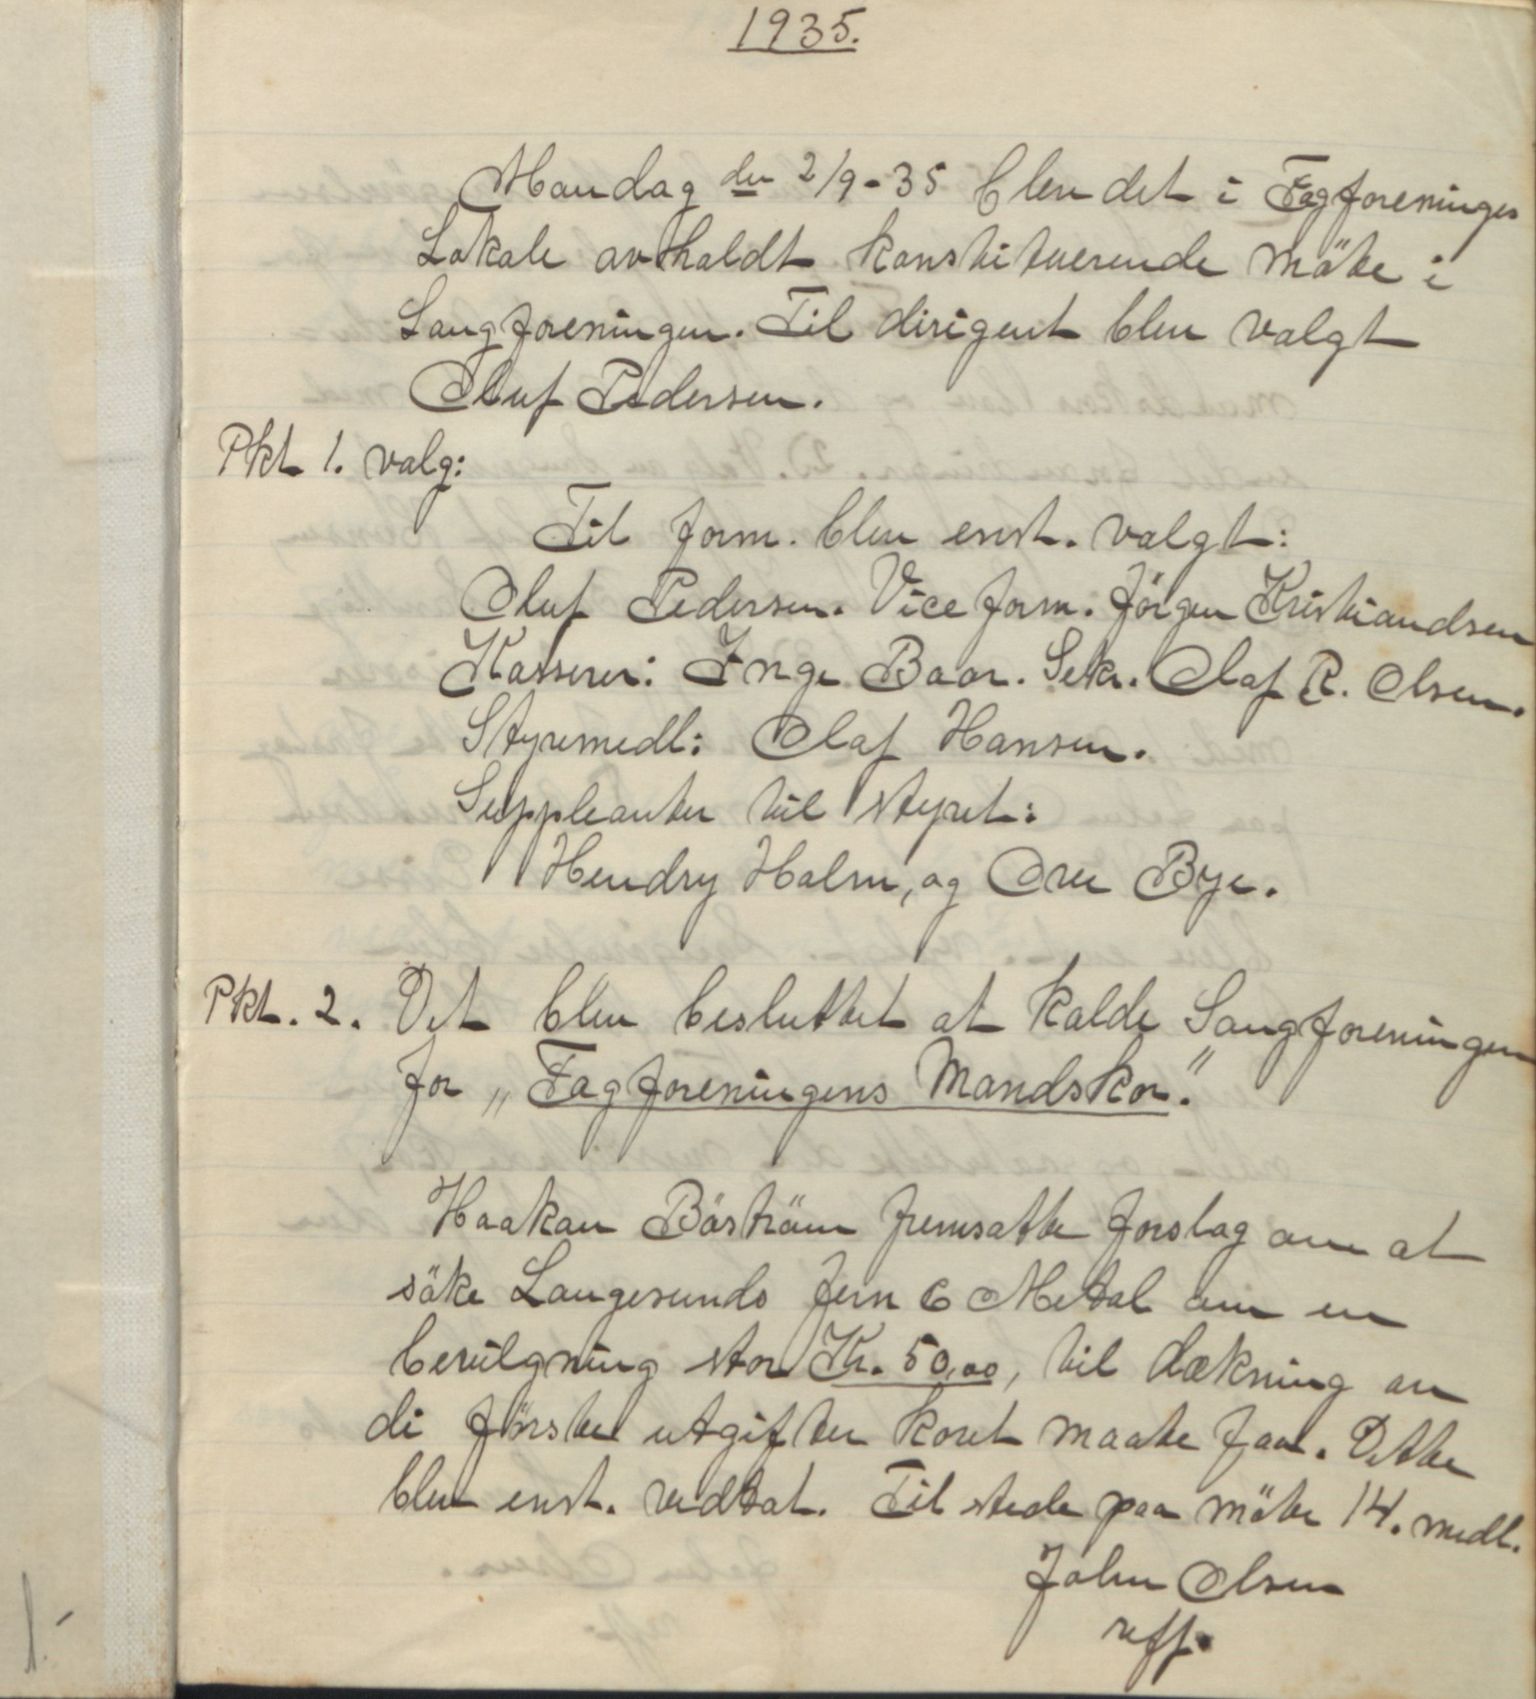 1935.
Mandag den 2/9-35 blev det i Fagforeninges
Lokale avholdt konstituerende möte i
Sangforeningen. Til dirigent blev valgt
Oluf Pedersen.
Pkt 1. valg:
Til form. blev enst. valgt:
Oluf Pedersen. Vice form. Jörgen Kristiandsen
Kasserer: Inge Baar. Sekr. Olaf R. Olsen.
Styremedl: Olaf Hansen.
Suppleanter til styret:
Hendry Holm, og Ove Bye.
Pkt. 2. Det blev besluttet at kalde Sangforeningen
for „Fagforeningens Mandskor."
Haakon Böström fremsatte forslag om at
söke Langesunds Jern & Metal om en
bevilgning stor Kr. 50,00, til dækning av
de förste utgifter koret maate faa. Dette
blev enst. vedtat. Til stede paa möte 14. medl.
John Olsen
reff.
1.-